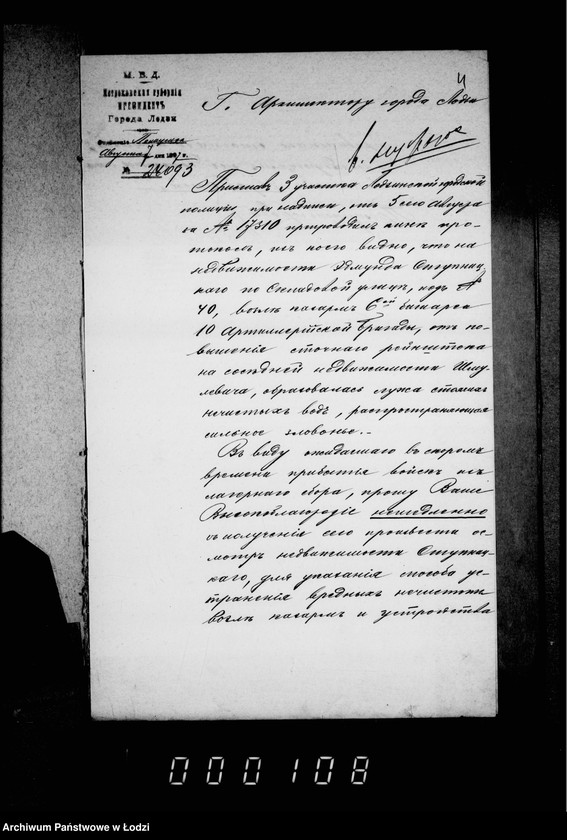 М. В. Д.
Петроковская губернія
ПРЕЗИДЕНТЪ
Города Лодзи
Августа 7 дня 1897 г.
№ 24093
4
Г. Архитектору города Лодзи
Приставъ 3 участка Лодзинской городской
полиціи, при надписи, отъ 5 сего Августа
за № 17310 препроводилъ мнѣ про-
токолъ, изъ коего видно, что на
недвижимости Хмунда Ступниц-
каго по Складовой улицѣ, подъ №
40, возлѣ казармъ 6ой батареи
10 Артиллерійской Бригады, отъ по-
вышенія сточнаго рейнштока
на сосѣдней недвижимости Шму-
левича, образовалась лужа сточныхъ
нечистыхъ водъ, распространяющая
сильное зловонье.–
Въ виду ожидаемаго въ скоромъ
времени прибытья войскъ изъ
лагернаго сбора, прошу Ваше
Высокоблагородіе немедленно
съ полученія сего произвести ос-
мотръ недвижимости Ступниц-
каго, для указанія способа ус-
траненія вредныхъ нечистотъ
возлѣ казармъ и устройства
000108
Archiwum Państwowe w Łodzi